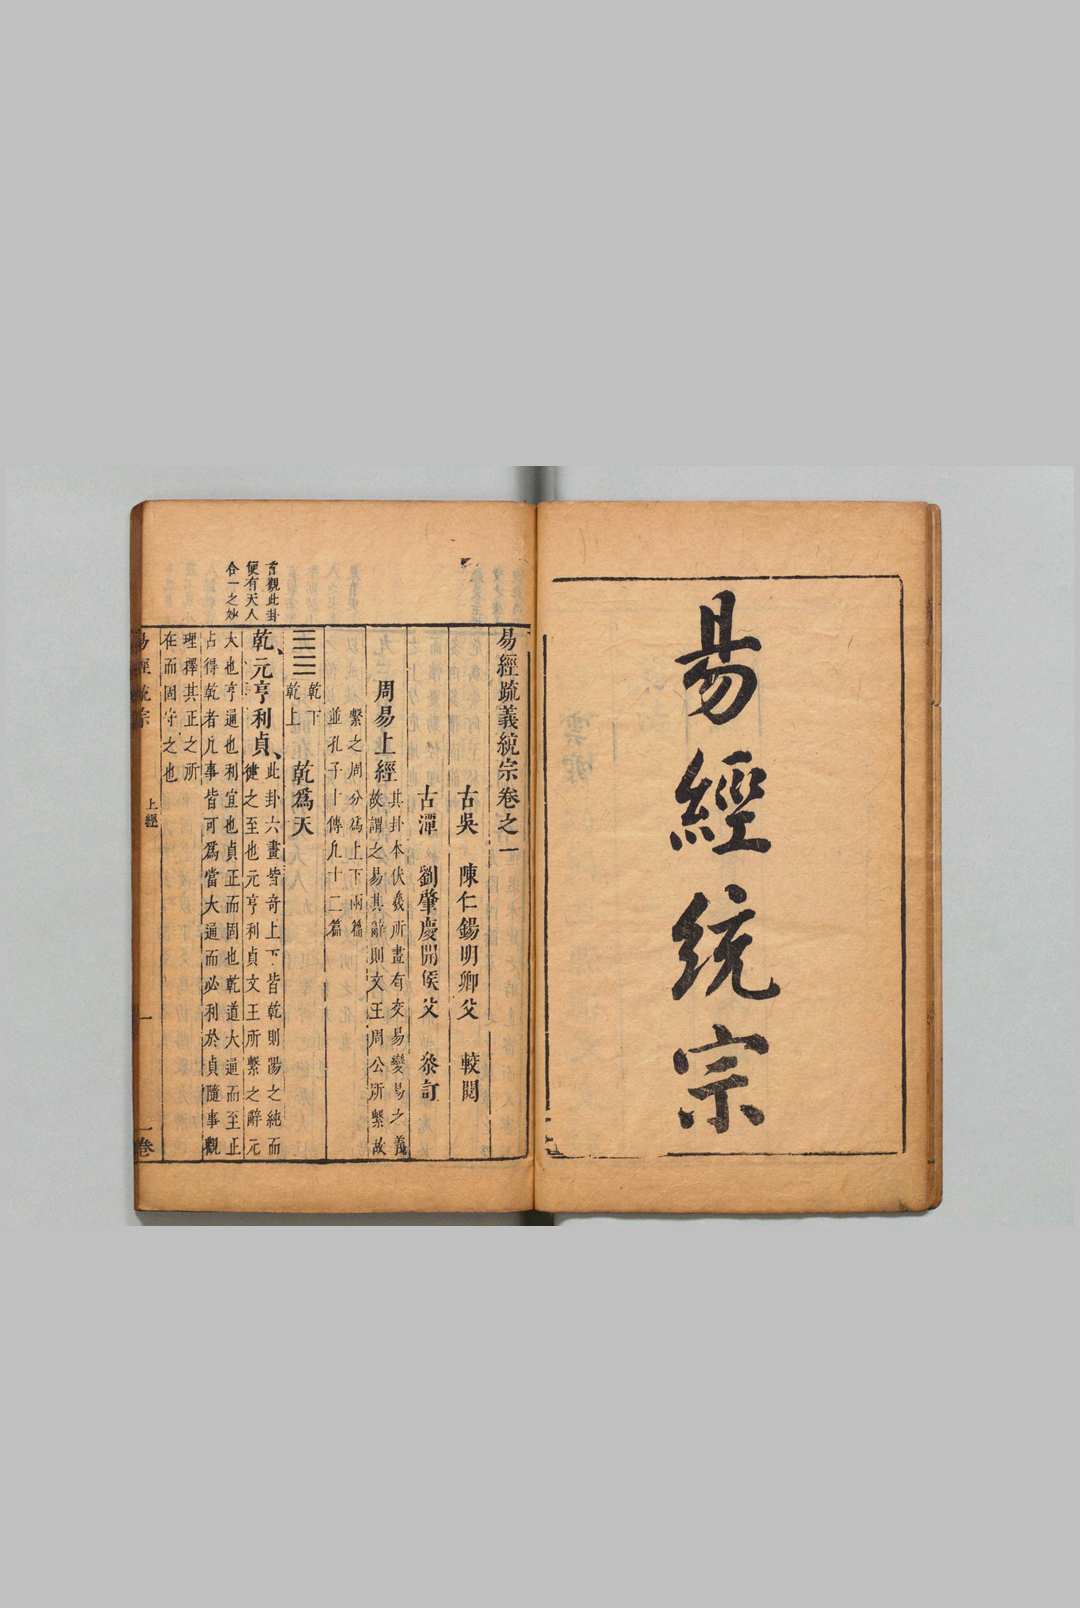 易經統宗
易經疏義統宗卷之一
古吳 陳仁錫明卿父 較閱
古潭 劉肇慶開侯父 叅訂
周易上經
其卦本伏羲所畫有交易變易之義
故謂之易其辭則文王周公所繫故
繫之周分爲上下兩篇
並孔子十傳凡十二篇
乾下
乾上
乾爲天
言觀此卦
便有天人
合一之妙
乾元亨利貞
此卦六畫皆奇上下皆乾則陽之純而
健之至也元亨利貞文王所繫之辭元
大也亨通也利宜也貞正而固也乾道大通而至正
占得乾者凡事皆可爲當大通而必利於貞隨事觀
理擇其正之所
在而固守之也
易經統宗
上經
一
一卷